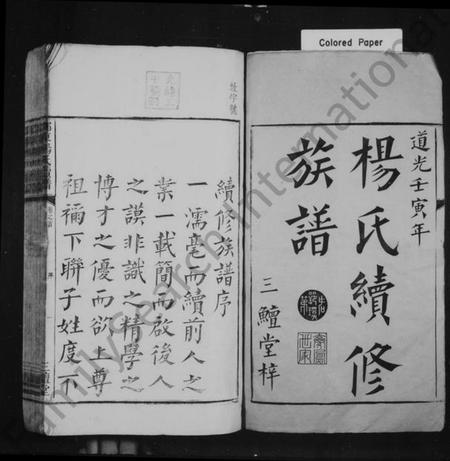 Colored Paper
道光壬寅年
楊氏續修
族譜
三鱣堂梓
續修族譜序
一濡毫而續前人之
業一載簡而啟後人
之謨非識之精學之
博才之優而欲上尊
祖禰下聯子姓度下
序
familysearch international